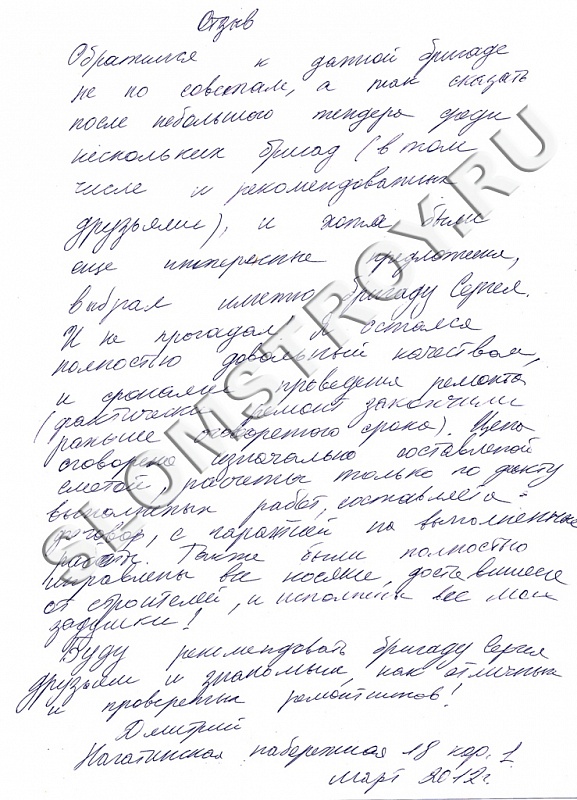 Отзыв
Обратился к данной бригаде
не по советам, а так сказать
после небольшого тендера среди
нескольких бригад (в том
числе и рекомендованных
друзьями), и хотя были
еще интересные предложения,
выбрал именно бригаду Сергея.
И не прогадал! Я остался
полностью довольный качеством,
и сроками проведения ремонта
(фактически ремонт закончили
раньше оговоренного срока). Цена
оговорена изначально составленой
сметой, расчеты только по факту
выполненных работ, составляется
договор, с гарантией на выполненные
работы. Также были полностью
исправлены все косяки, доставшиеся
от строителей, и исполнены все мои
задумки!
Буду рекомендовать бригаду Сергея
друзьям и знакомым, как отличных
и проверенных ремонтников!
Дмитрий
Нагатинская набережная 18 кор. 1
Март 2012г.
SLOMSTROY.RU